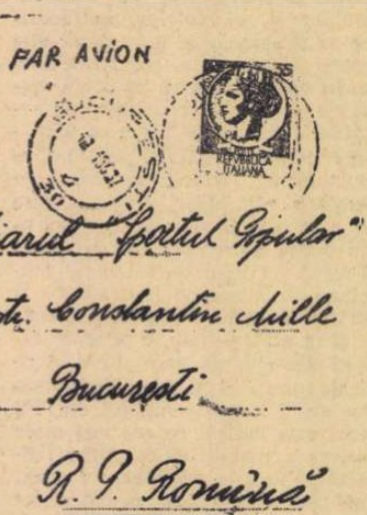 PAR AVION
55
REPVBBLICA
ITALIANA
BUCUREȘTI
7
iarul "Sportul Popular"
str. Constantin Mille
București
R. P. Romînă